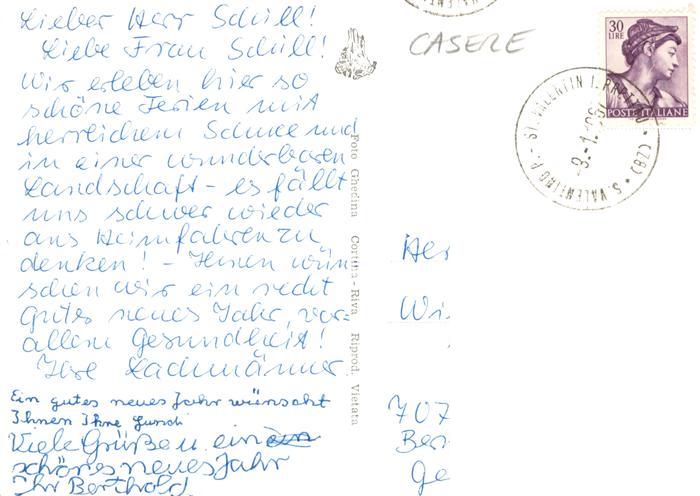 Lieber Herr Schüll!
Liebe Frau Schüll!
Wir erleben hier so
schöne Ferien mit
herrlichem Schnee und
in einer wunderbaren
Landschaft - es fällt
uns schwer wieder
ans Heimfahren zu
denken! - Ihnen wün
schen wir ein recht
gutes neues Jahr, vor=
allem Gesundheit!
Ihre Lachmänner
Ein gutes neues Jahr wünscht
Ihnen Ihre Gundi
Viele Grüße u. ein
schönes neues Jahr
Ihr Berthold
Foto Ghedina Cortina - Riva Riprod. Vietata
CASERE
30
LIRE
POSTE ITALIANE
S. VALENTINO P. - ST. VALENTIN (BZ)
Her
Wi
707
Ber
Ge